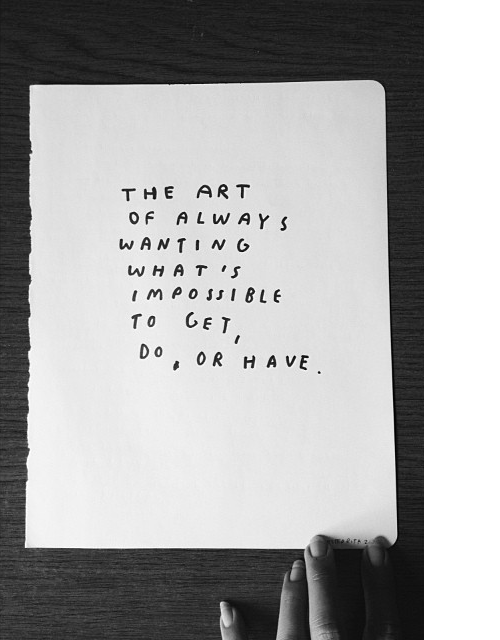 THE ART
OF ALWAYS
WANTING
WHAT'S
IMPOSSIBLE
TO GET,
DO, OR HAVE.